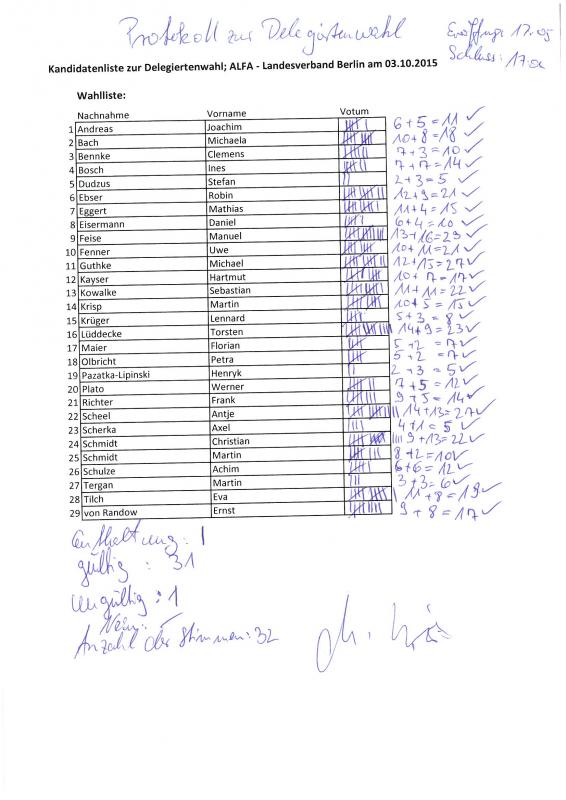 Protokoll zur Delegiertenwahl
Eröffnung: 17.05
Schluss: 17.
Kandidatenliste zur Delegiertenwahl; ALFA - Landesverband Berlin am 03.10.2015
Wahlliste:
Nachnahme Vorname Votum
1 Andreas Joachim 6+5=11 ✓
2 Bach Michaela 10+8=18 ✓
3 Bennke Clemens 7+3=10 ✓
4 Bosch Ines 7+7=14 ✓
5 Dudzus Stefan 2+3=5 ✓
6 Ebser Robin 12+9=21 ✓
7 Eggert Mathias 11+4=15 ✓
8 Eisermann Daniel 6+4=10 ✓
9 Feise Manuel 13+16=23 ✓
10 Fenner Uwe 10+11=21 ✓
11 Guthke Michael 12+15=27 ✓
12 Kayser Hartmut 10+7=17 ✓
13 Kowalke Sebastian 11+11=22 ✓
14 Krisp Martin 10+5=15 ✓
15 Krüger Lennard 5+3=8 ✓
16 Lüddecke Torsten 14+9=23 ✓
17 Maier Florian 5+2=7 ✓
18 Olbricht Petra 5+2=7 ✓
19 Pazatka-Lipinski Henryk 2+3=5 ✓
20 Plato Werner 7+5=12 ✓
21 Richter Frank 9+5=14 ✓
22 Scheel Antje 14+13=27 ✓
23 Scherka Axel 4+1=5 ✓
24 Schmidt Christian 9+13=22 ✓
25 Schmidt Martin 8+2=10 ✓
26 Schulze Achim 6+6=12 ✓
27 Tergan Martin 3+3=6 ✓
28 Tilch Eva 11+8=19 ✓
29 von Randow Ernst 9+8=17 ✓
Enthaltung: 1
gültig: 31
ungültig: 1
Nein: -
Anzahl der Stimmen: 32